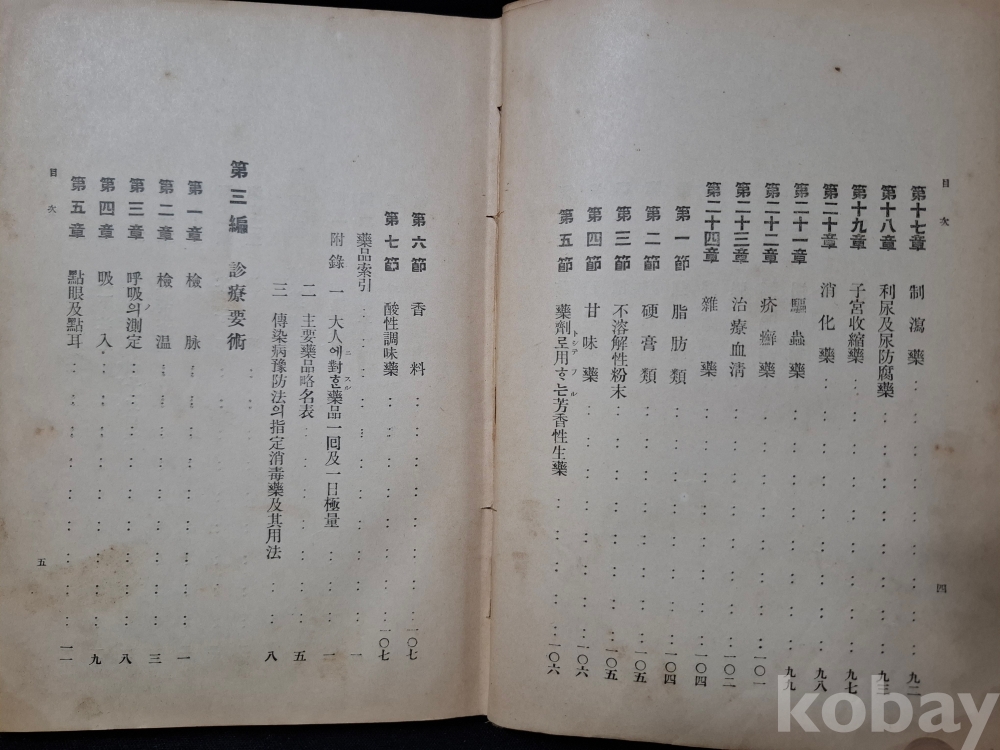 目次
第十七章 制瀉藥 九二
第十八章 利尿及尿防腐藥 九三
第十九章 子宮收縮藥 九七
第二十章 消化藥 九八
第二十一章 驅蟲藥 九九
第二十二章 疥癬藥 一〇一
第二十三章 治療血清 一〇二
第二十四章 雜藥 一〇四
第一節 脂肪類 一〇四
第二節 硬膏類 一〇五
第三節 不溶解性粉末 一〇五
第四節 甘味藥 一〇六
第五節 藥劑로用ᄒᆞ는芳香性生藥 一〇六
トシテ フル
四
第六節 香料 一〇七
第七節 酸性調味藥 一〇七
藥品索引 一
附錄 一 大人에對ᄒᆞᆫ藥品一回及一日極量 一
ニ スル
二 主要藥品略名表 五
三 傳染病豫防法의指定消毒藥及其用法 八
第三編 診療要術
第一章 檢脉 一
第二章 檢溫 三
第三章 呼吸의測定 八
ノ
第四章 吸入 九
第五章 點眼及點耳 一一
目次
五
kobay